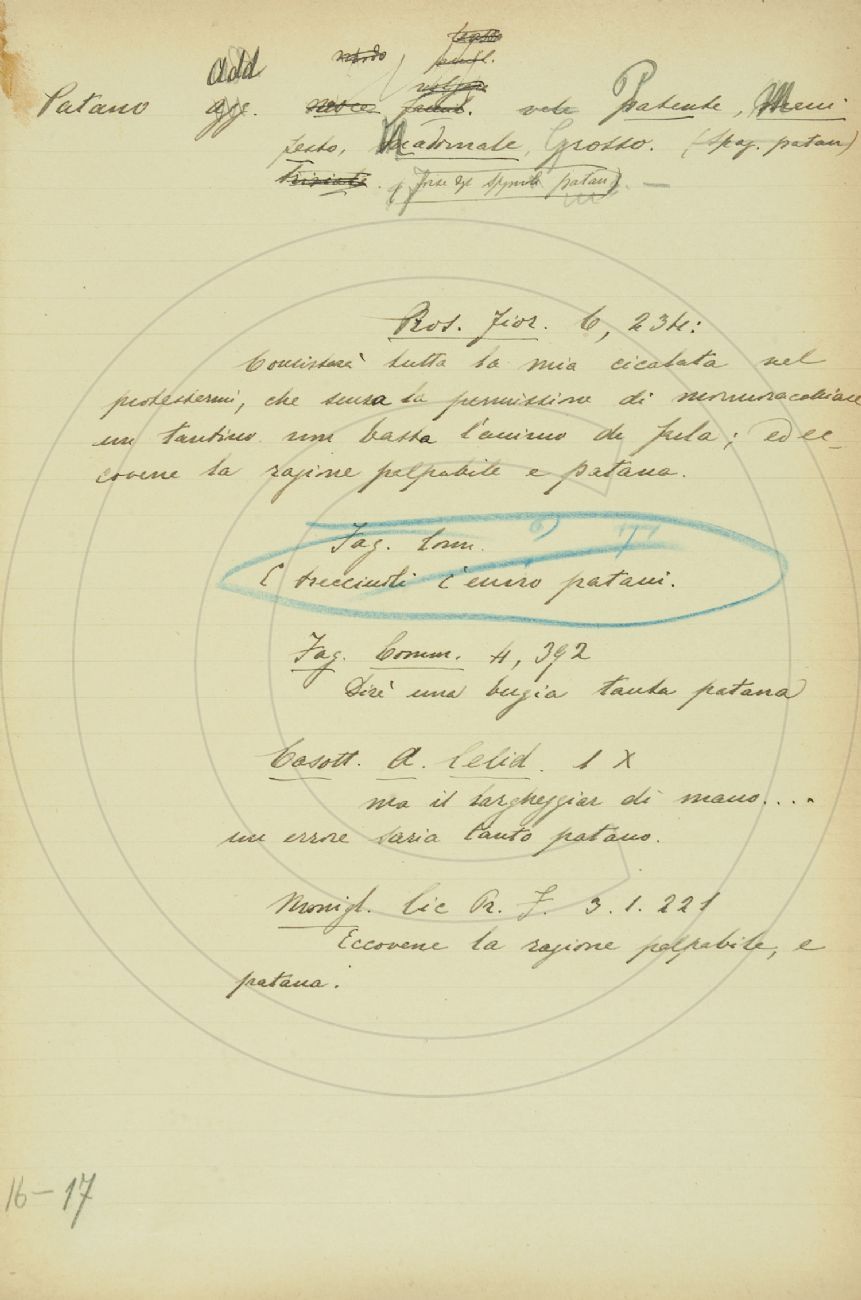 add
Patano agg. vale Patente, Mani
festo, Madornale, Grosso. (Spag. patan)
(forse dal spagnuolo patan)
Pros. Fior. 6, 234:
Consisterà tutta la mia cicalata nel
protestarmi, che senza la permissione di
un tantino non basta l'animo di farla; ed ec-
covene la ragione palpabile e patana.
Fag. Comm.
E trecciuoli c'enno patani.
Fag. Comm. 4, 392
Dirè una bugia tanta patana
Casott. A. Celid. 1 X
ma il largheggiar di mano....
un errore saria tanto patano.
Monigl. Cic. Pr. F. 3.1.221
Eccovene la ragione palpabile, e
patana.
16-17